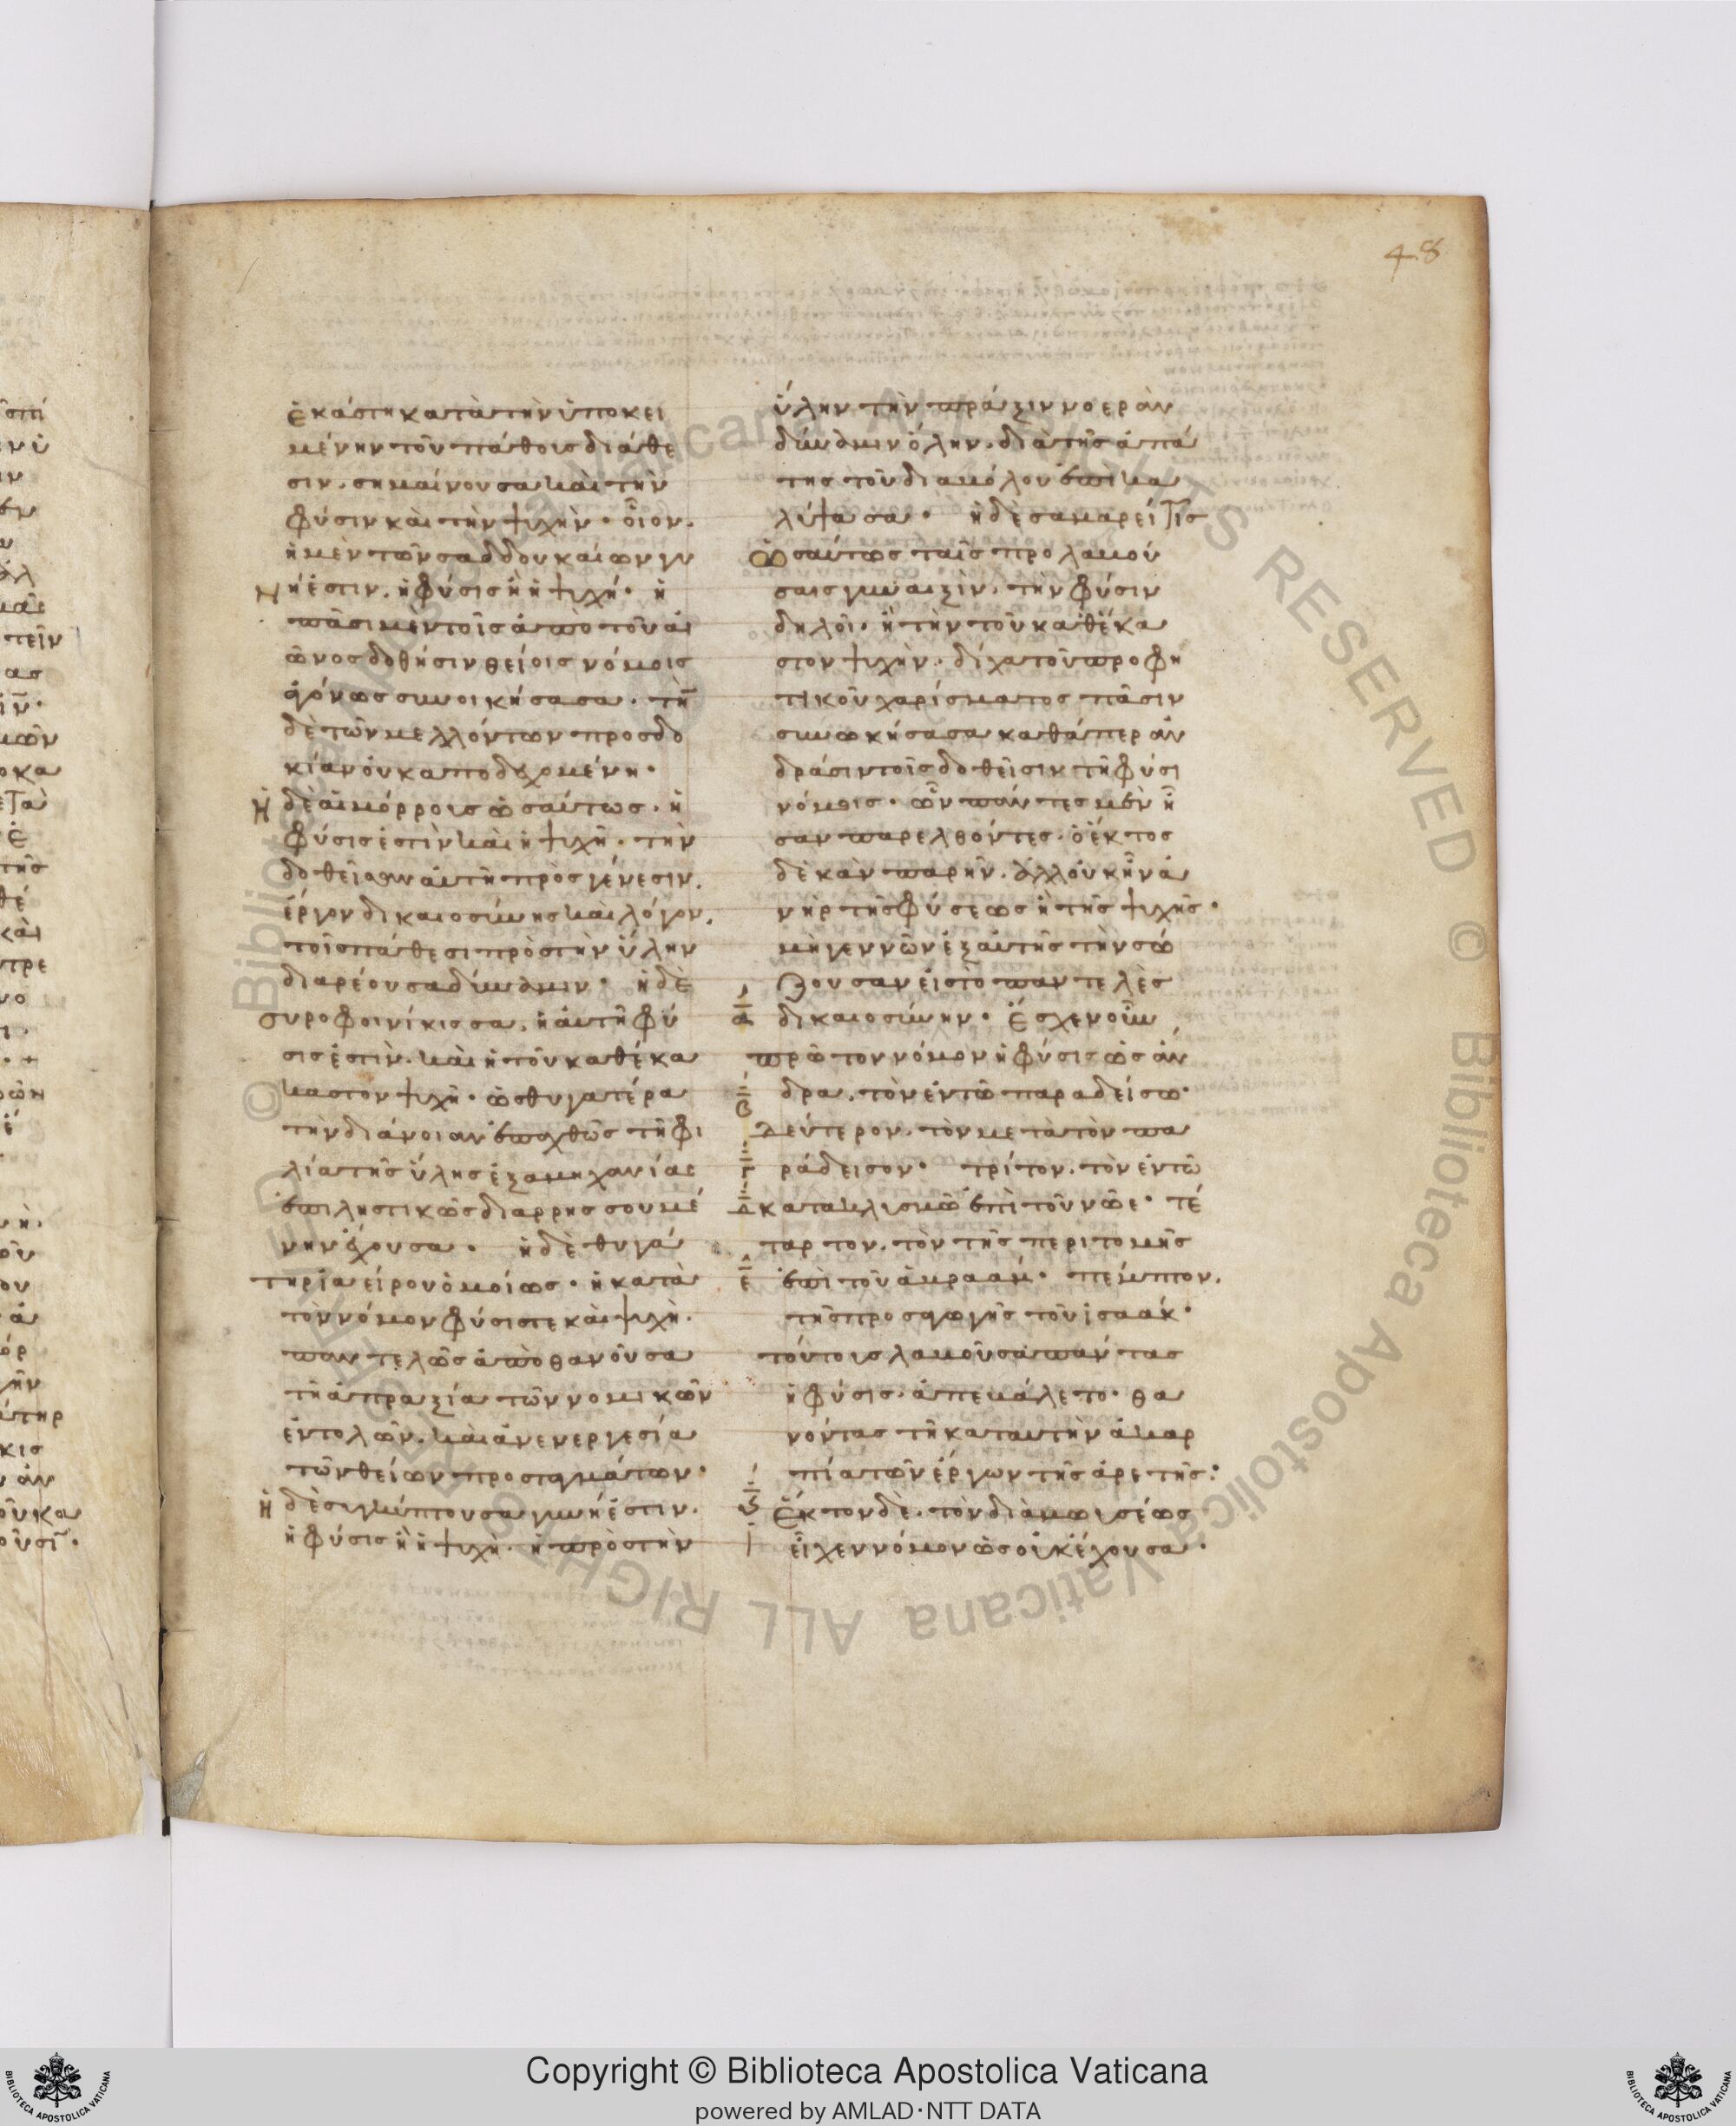 48
ἑκάστη κατὰ τὴν ὑποκει
μένην τοῦ πάθους διάθε
σιν. σημαίνουσα καὶ τὴν
φύσιν καὶ τὴν ψυχὴν· οἷον.
ἡ μὲν τῶν σαδδουκαίων γυ
νή ἐστιν. ἡ φύσις ἢ ἡ ψυχή· ἡ
πᾶσι μὲν τοῖς ἀπὸ τοῦ αἰ
ῶνος δοθήσιν θείοις νόμοις
ἀγόνως συνοικήσασα· τὴν
δὲ τῶν μελλόντων προσδο
κίαν οὐκ ἀποδεχομένη·
Ἡ δὲ αἱμόρρους ὡσαύτως. ἡ
φύσις ἐστὶν καὶ ἡ ψυχὴ· τὴν
δοθεῖσαν αὐτῆ πρὸς γένεσιν.
ἔργον δικαιοσύνης καὶ λόγον.
τοῖς πάθεσι πρὸς τὴν ὕλην
διαρέουσα δύναμιν· ἡ δὲ
συροφοινίκισσα. ἡ αὐτὴ φύ
σις ἐστὶν. καὶ ἡ τοῦ καθέκα
καστον ψυχὴ· ὡς θυγατέρα
τὴν διάνοιαν ἐπαχθῶς τῆ φι
λία τῆς ὕλης ἐξ ἀμηχανίας
ἐπιληπτικῶς διαρρησσουμέ
νην ἔχουσα· ἡ δὲ θυγά
τηρ ϊαείρου ὁμοίως· ἡ κατὰ
τὸν νόμον φύσις τε καὶ ψυχὴ.
παντελῶς ἀποθανοῦσα
τῆ ἀπραξία τῶν νομικῶν
ἐντολῶν. καὶ ἀνενεργεσία
τῶν θείων προσταγμάτων·
Ἡ δὲ συγκύπτουσα γυνή ἐστιν.
ἡ φύσις ἢ ἡ ψυχὴ. ἡ πρὸς τὴν
ὕλην τὴν πρᾶξιν νοερὰν
δύναμιν ὅλην. διὰ τῆς ἀπά
της τοῦ διαβόλου ἐπικα
λύψασα· ἡ δὲ σαμαρείτις
ὡσαύτως ταῖς προλαβού
σαις γυναιξὶν. τὴν φύσιν
δηλοῖ· ἢ τὴν τοῦ καθέκα
στον ψυχὴν. δίχα τοῦ προφη
τικοῦ χαρίσματος πᾶσιν
συνωκήσασα καθάπερ ἀν
δράσιν τοῖς δοθεῖσιν τῆ φύσι
νόμοις· ὧν πάντες μὲν ἦ
σαν παρελθόντες. ὁ ἕκτος
δὲ κἂν παρῆν. ἀλλ' οὐκ ἦν ἀ
νὴρ τῆς φύσεως ἢ τῆς ψυχῆς·
μὴ γεννῶν ἐξ αὐτῆς τὴν σώ
ζουσαν εἰς τὸ παντελὲς
α δικαιοσύνην· Ἔσχεν οὖν
πρῶτον νόμον ἡ φύσις ὡς ἄν
β δρα. τὸν ἐν τῶ παραδείσω·
Δεύτερον. τὸν μετὰ τὸν πα
γ ράδεισον· τρίτον. τὸν ἐν τῶ
δ κατακλυσμῶ ἐπὶ τοῦ νῶε· τέ
ταρτον. τὸν τῆς περιτομῆς
ε ἐπὶ τοῦ ἀβραάμ· πέμπτον.
τῆς προσαγωγῆς τοῦ ἰσαάκ·
τούτους λαβοῦσα πάντας
ἡ φύσις. ἀπεβάλετο· θα
νόντας τῆ κατ' αυτὴν ἀκαρ
πία τῶν ἔργων τῆς ἀρετῆς:
ϛ Ἕκτον δὲ. τὸν διὰ μωυσέως
εἶχεν νόμον ὡς οὐκ ἔχουσα·
Copyright © Biblioteca Apostolica Vaticana
powered by AMLAD·NTT DATA